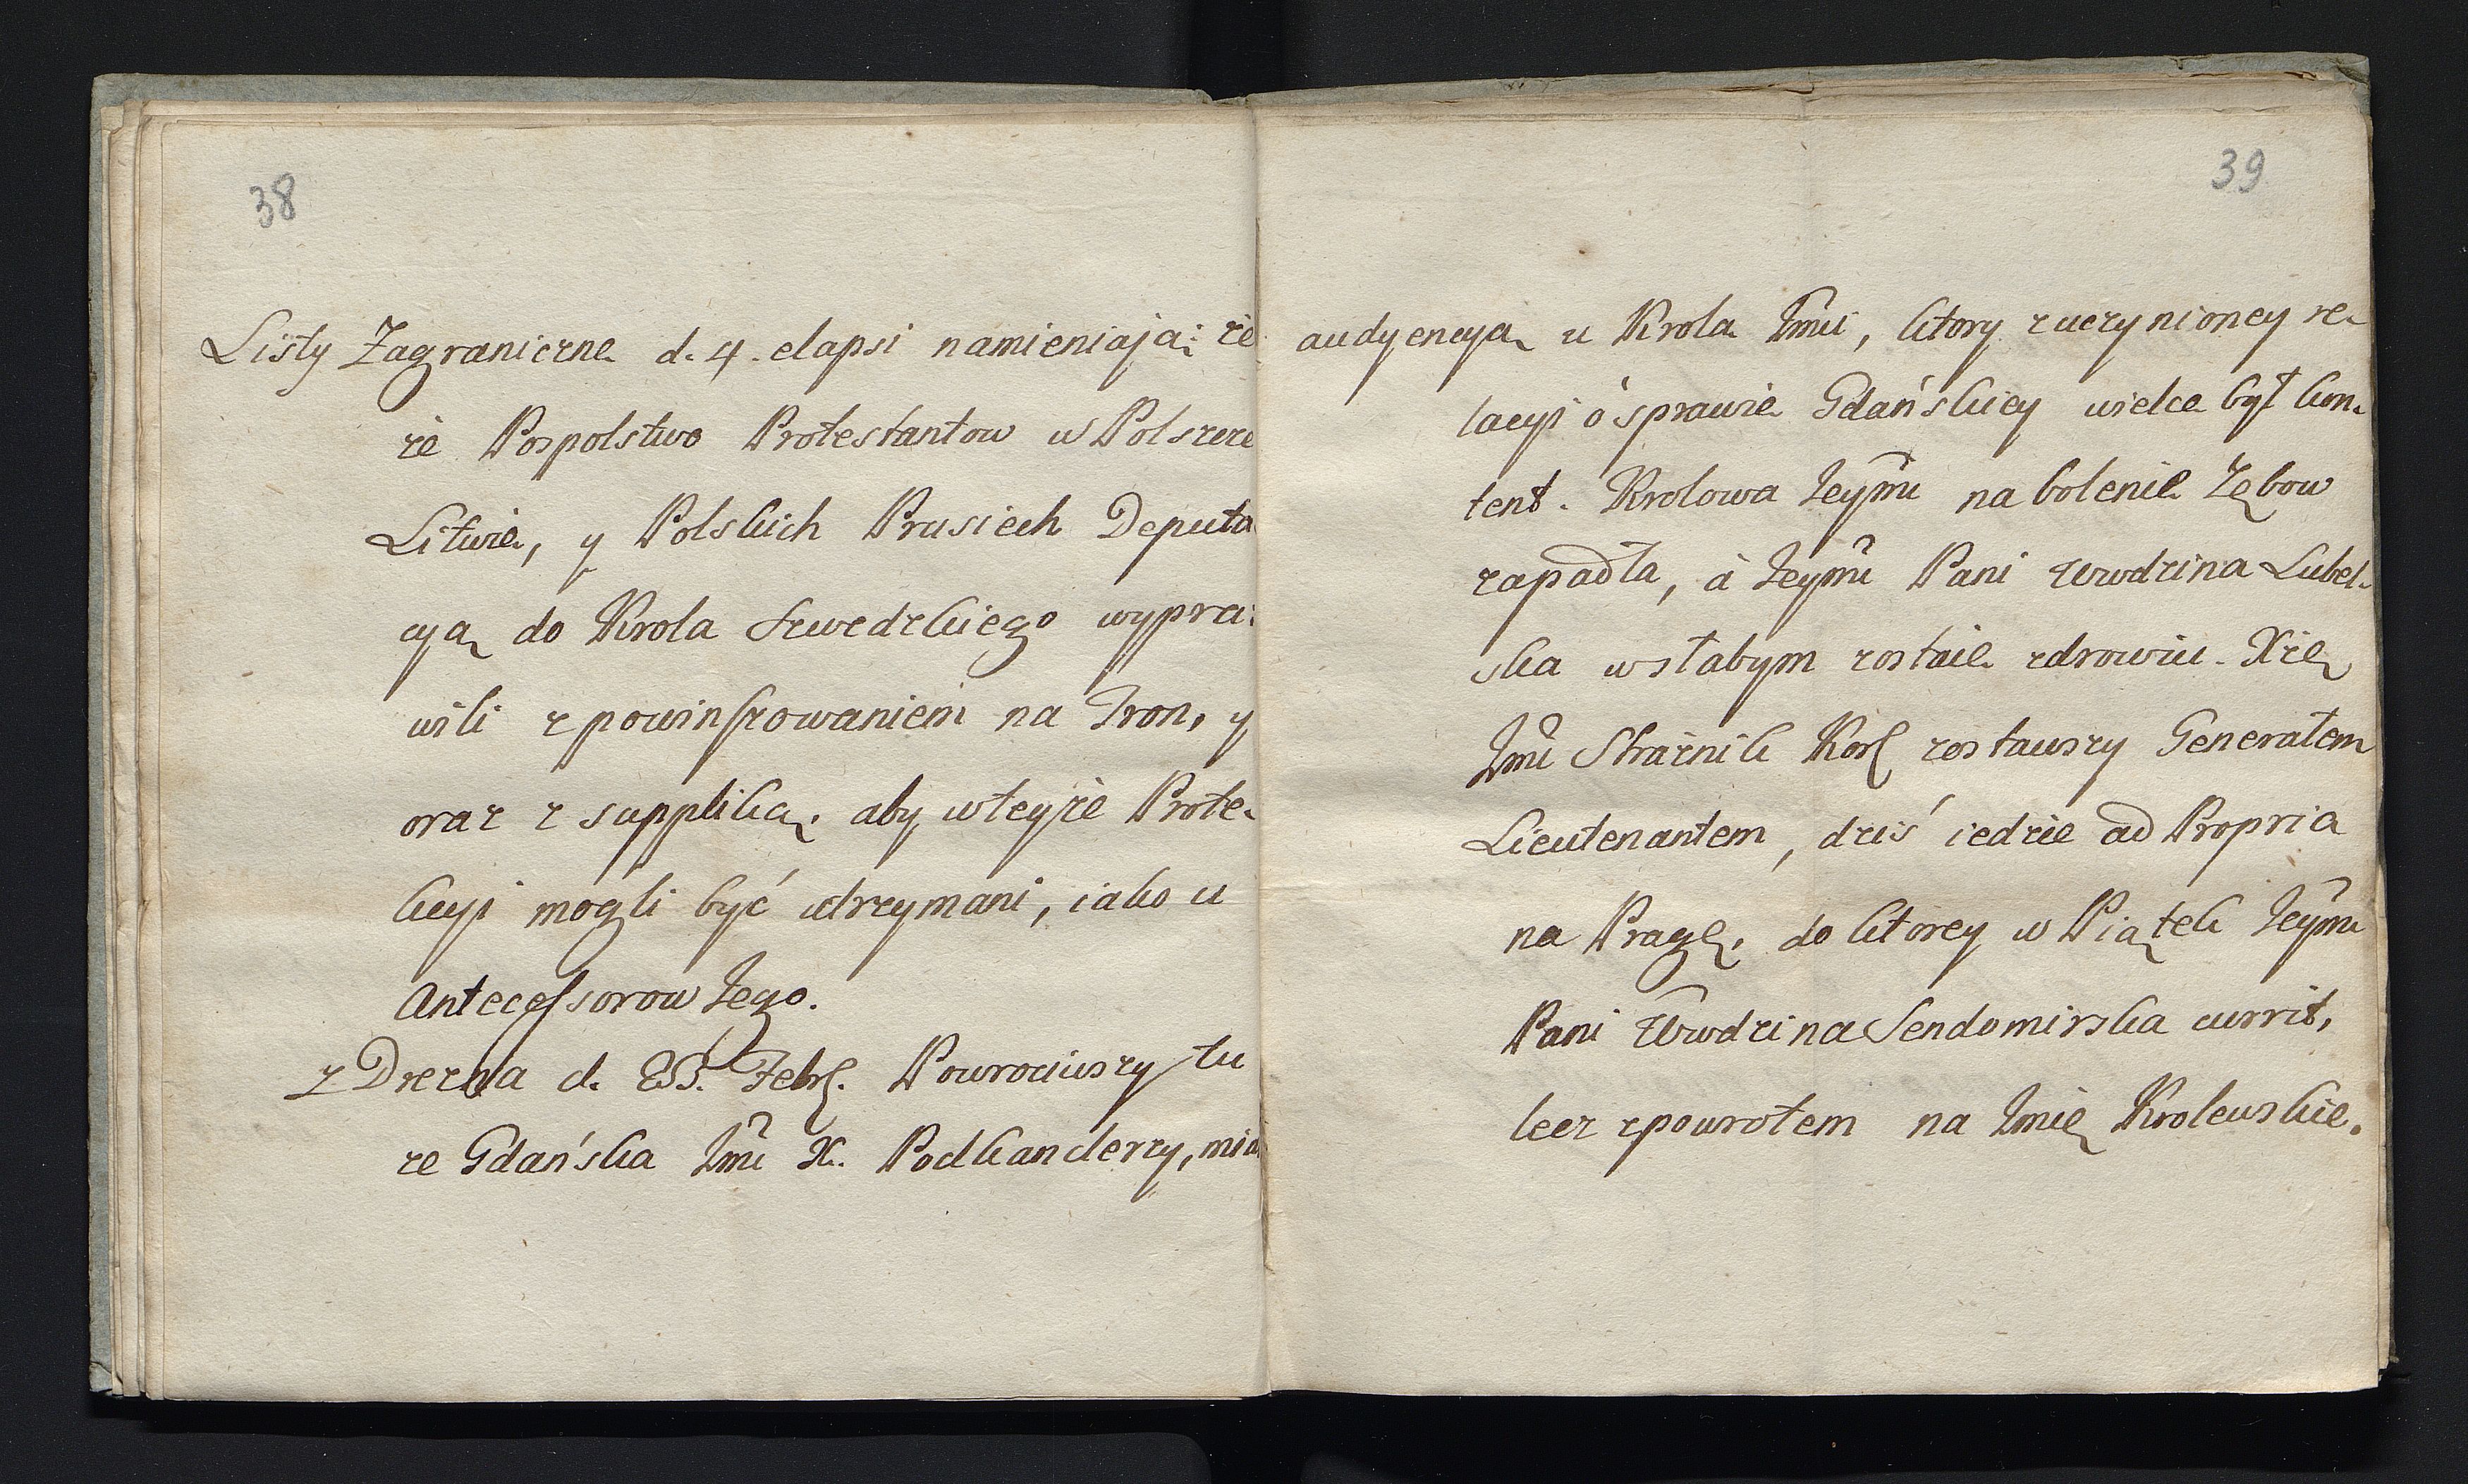 38
Listy Zagraniczne d. 4. elapsi namieniaja: że
że Pospolstwo Protestantow w Polszcze
Litwie, y Polskich Prusiech Deputa
cyą do Krola Szwedzkiego wypra:
wili z powinszowaniem na Tron, y
oraz z suppliką. aby w teyże Prote-
kcyi mogli być utrzymani, iako u
Antecessorow Jego.
z Drezna d. Febr. Powrociwszy tu
ze Gdańska Jmć X. Podkanclerzy, mia
39
audyencyą u Krola Jmci, ktory z uczynioney re-
lacyi o sprawie Gdańskiey wielce był kon-
tent. Krolowa Jeymć na bolenie Zębow
zapadła, à Jeymć Pani Wwdzina Lubel-
ska w słabym zostaie zdrowiu. Xżę
Jmć Strażnik Kor. zostawszy Generałem
Lieutenantem, dziś iedzie ad Propria
na Pragę. do ktorey w Piątek Jeymć
Pani Wwdzina Sendomirska currit,
lecz z powrotem na Jmię Krolewskie.